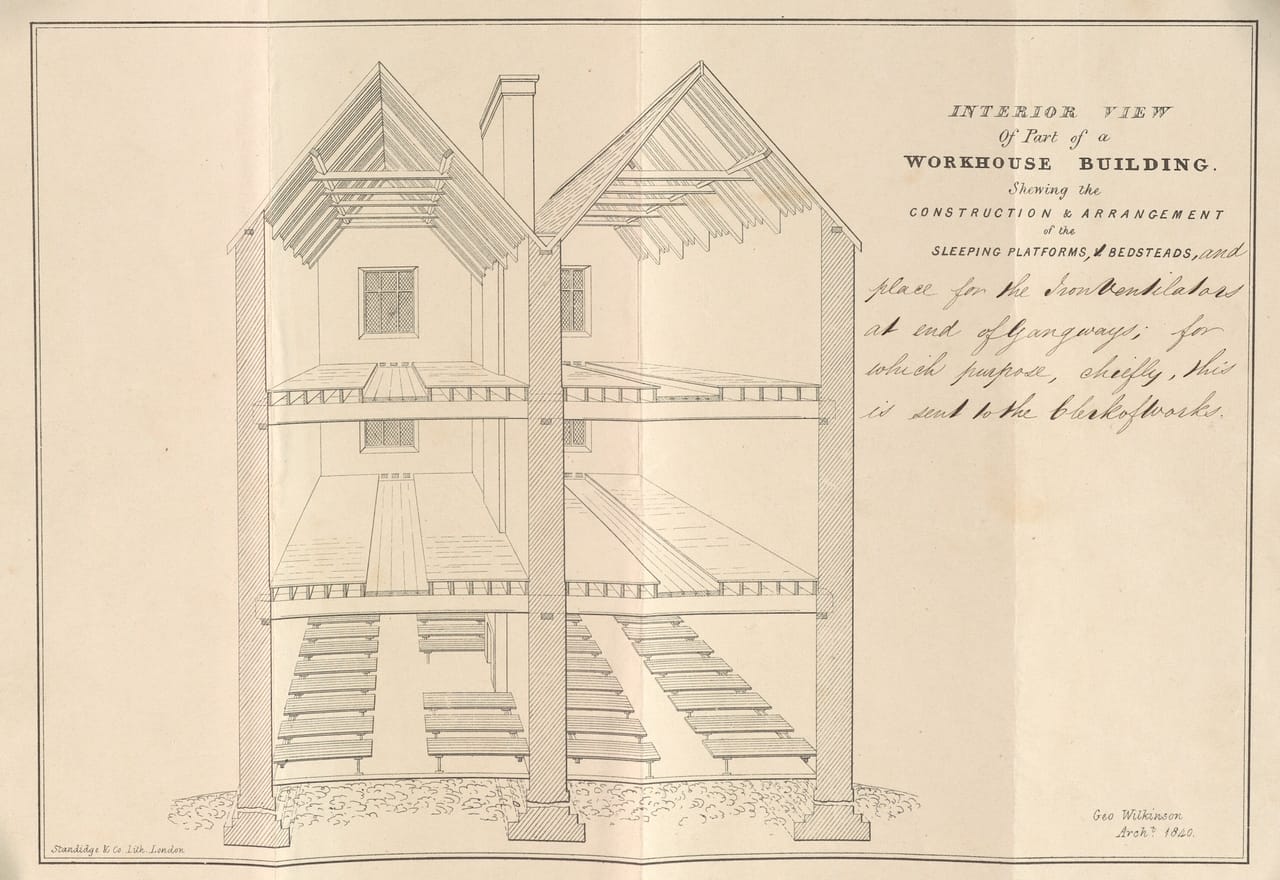 INTERIOR VIEW
Of Part of a
WORKHOUSE BUILDING.
Shewing the
CONSTRUCTION & ARRANGEMENT
of the
SLEEPING PLATFORMS, & BEDSTEADS, and
place for the Iron Ventilators
at end of Gangways; for
which purpose, chiefly, this
is sent to the Clerk of Works.
Geo Wilkinson
Archt. 1840.
Standidge & Co. Lith. London